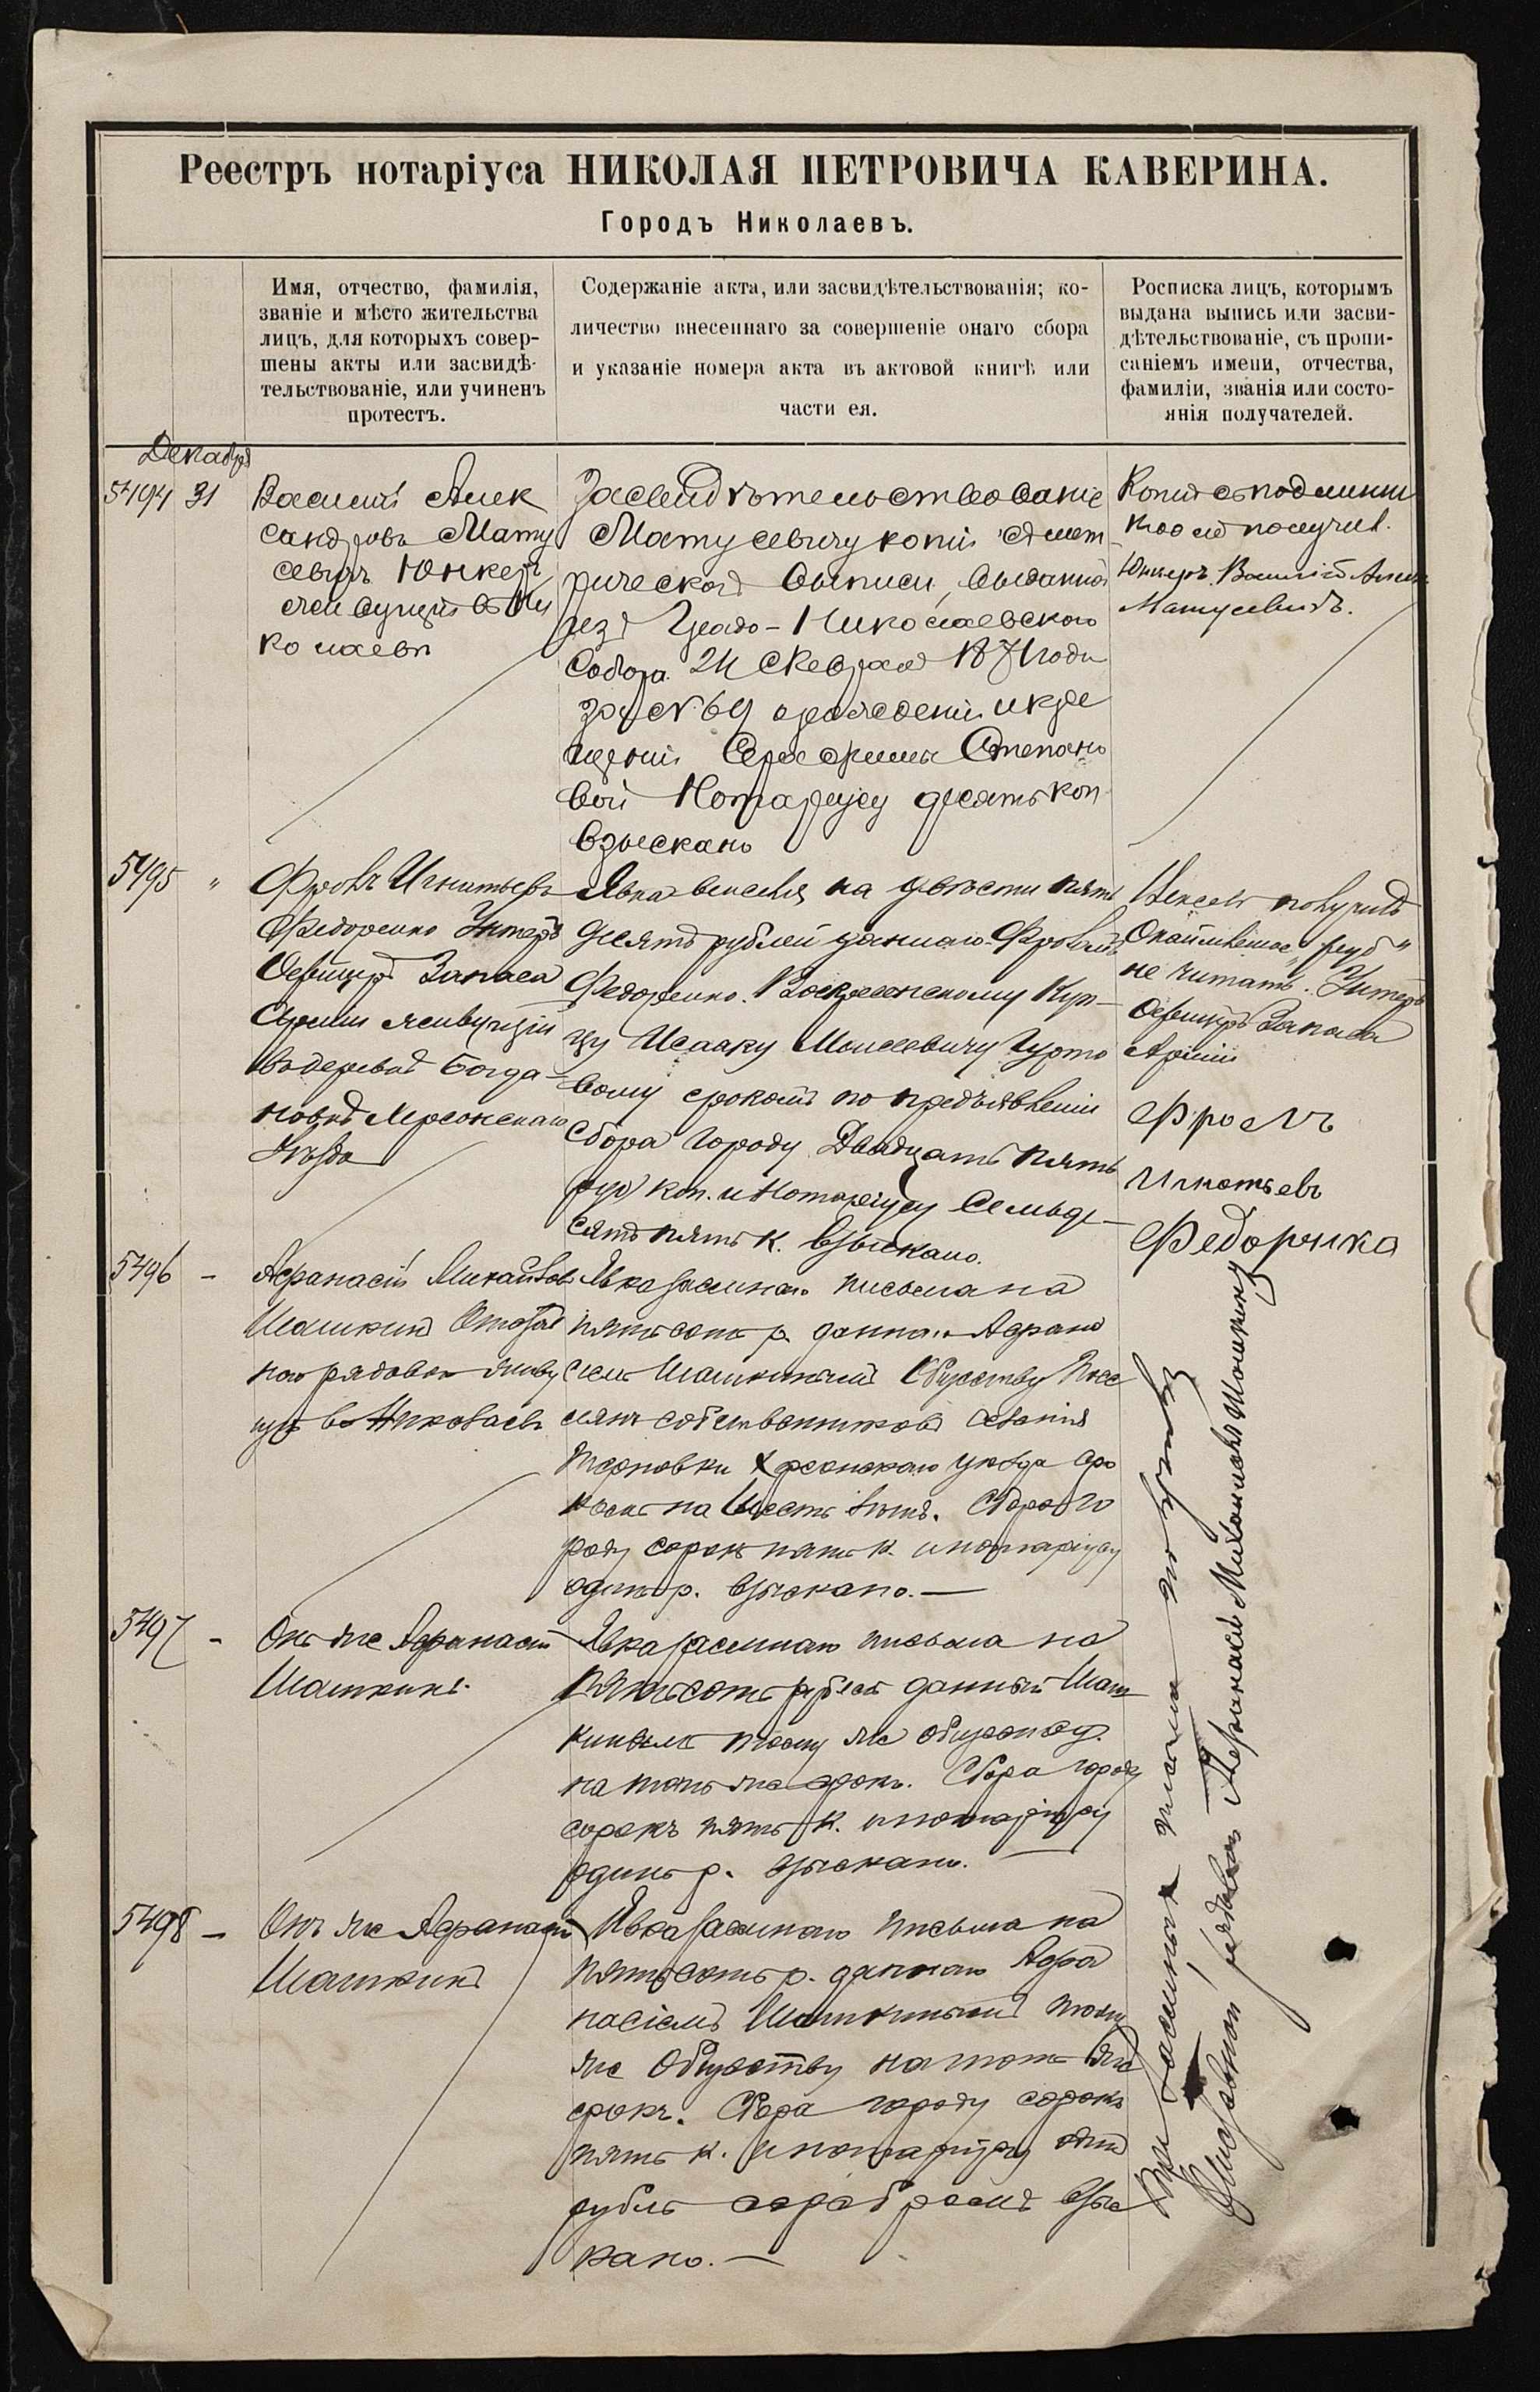 Реестръ нотаріуса НИКОЛАЯ ПЕТРОВИЧА КАВЕРИНА.
Городъ Николаевъ.
Имя, отчество, фамилія,
званіе и мѣсто жительства
лицъ, для которыхъ совер-
шены акты или засвидѣ-
тельствованіе, или учиненъ
протестъ.
Содержаніе акта, или засвидѣтельствованія; ко-
личество внесеннаго за совершеніе онаго сбора
и указаніе номера акта въ актовой книгѣ или
части ея.
Росписка лицъ, которымъ
выдана выпись или засви-
дѣтельствованіе, съ пропи-
саніемъ имени, отчества,
фамиліи, званія или состо-
янія получателей.
Декабря
5494 31
Василій Алек
сандровъ Мату
севичъ Юнкеръ
живущій въ Ни
колаевѣ
Засвидѣтельствованіе
Матусевичу копіи съ мет
рической выписи, выданной
изъ Градо-Николаевскаго
Собора 24 Февраля 1871 года
за № 69 о рожденіи и кре
щеніи Серафимы Степано
вой Нотаріусу десять коп
взыскано
Копію съ подлинни
комъ получилъ.
Юнкеръ Василій Алек
Матусевичъ.
5495 "
Фролъ Игнатьевъ
Федоренко Унтеръ
Офицеръ Запаса
Арміи живущій
въ деревнѣ Богда-
новкѣ Херсонскаго
Уѣзда
Явка векселя на двѣсти пять
десятъ рублей даннаго Фроломъ
Федоренко Воскресенскому Куп-
цу Исааку Моисеевичу Гурто
вому срокомъ по предъявленіи
Сбора Городу Двадцать пять
коп. и Нотаріусу Семьде-
сятъ пять к. взыскано.
Вексель получилъ
не читать. Унтеръ
Офицеръ Запаса
Арміи
Фролъ
Игнатьевъ
Федоренко
5496 -
Афанасій Михайлов
Шашкинъ Отстав
ной рядовой живу
щій въ Николаевѣ
Явка заемнаго письма на
пятьсотъ р. даннаго Афана
сіемъ Шашкинымъ Обществу Посе
лянъ собственниковъ селенія
Терновки Херсонскаго уѣзда сро
комъ на Шесть лѣтъ. Сбора Го
роду сорокъ пять к. и нотаріусу
одинъ р. взыскано. —
5497 -
Онъ же Афанасій
Шашкинъ.
Явка заемнаго письма на
Пятьсотъ рублей данный Шаш
кинымъ тому же обществу
на тотъ же срокъ. Сбора городу
сорокъ пять к. и нотаріусу
одинъ р. взыскано. —
5498 -
Онъ же Афанасій
Шашкинъ
Явка заемнаго письма на
пятьсотъ р. даннаго Афа
насіемъ Шашкинымъ тому
же Обществу на тотъ же
срокъ. Сбора городу сорокъ
пять к. и нотаріусу одинъ
рубль серебромъ взыс
кано. —
Три заемныхъ письма получилъ
Отставной рядовой Афанасій Михайловъ Шашкинъ